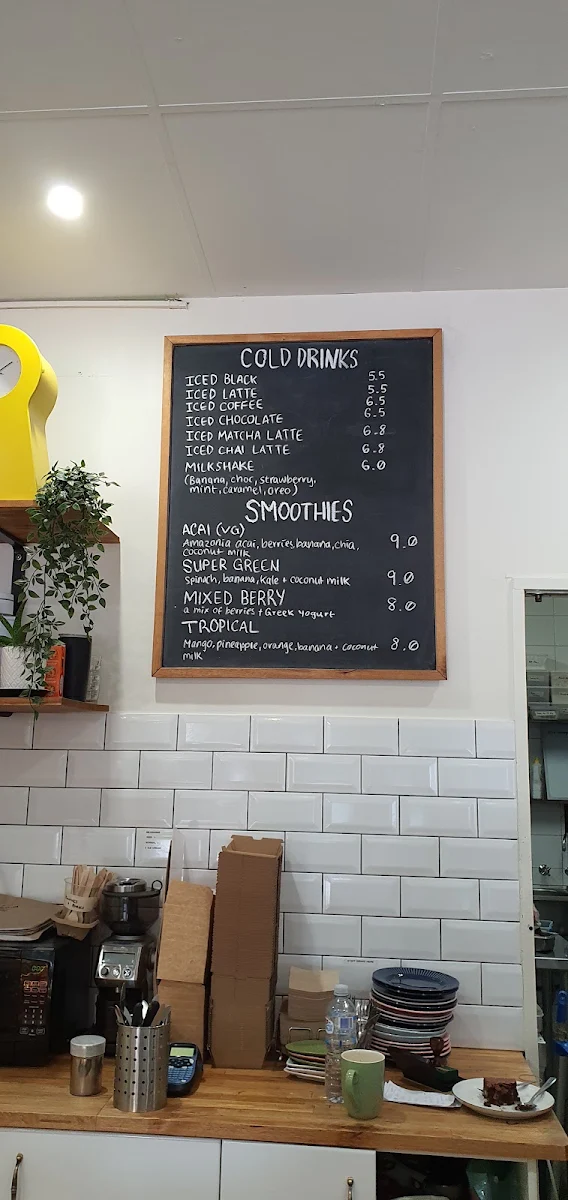 COLD DRINKS
ICED BLACK 5.5
ICED LATTE 5.5
ICED COFFEE 6.5
ICED CHOCOLATE 6.5
ICED MATCHA LATTE 6.8
ICED CHAI LATTE 6.8
MILKSHAKE 6.0
(Banana, choc, strawberry,
mint, caramel, oreo)
SMOOTHIES
ACAI (VG)
Amazonia acai, berries, banana, chia, 9.0
coconut milk
SUPER GREEN
spinach, banana, kale + coconut milk 9.0
MIXED BERRY 8.0
a mix of berries + Greek yogurt
TROPICAL
Mango, pineapple, orange, banana + coconut 8.0
milk